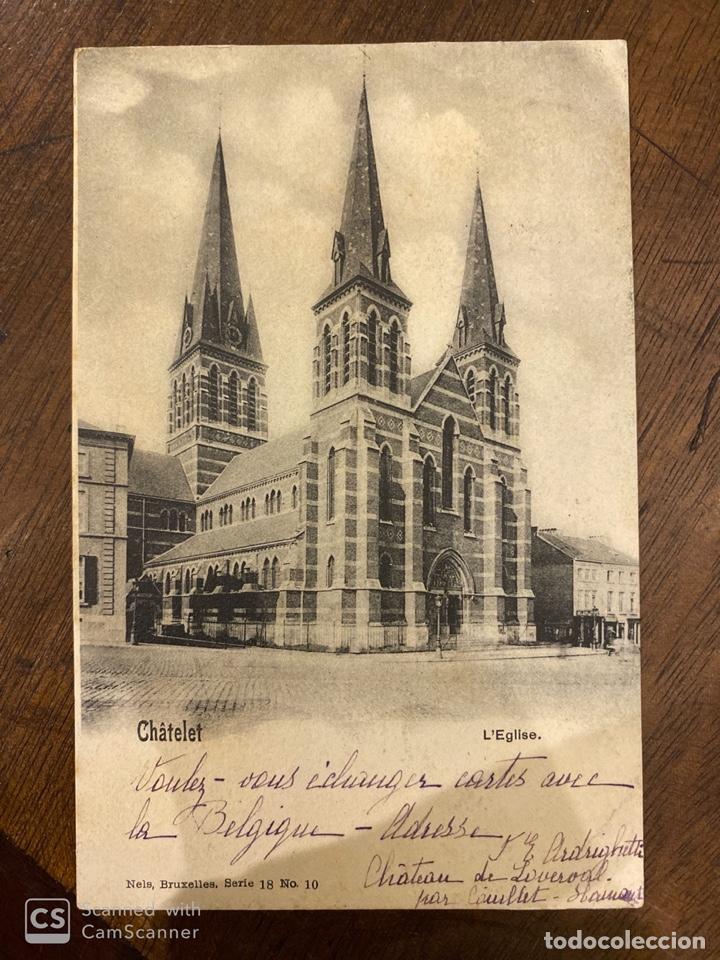 Châtelet
L'Eglise.
Voulez-vous échanger cartes avec
la Belgique - Adresse
E Ardrighetti
Château de Loverval.
par Couillet - Hainaut
Nels, Bruxelles. Serie 18 No. 10
CS Scanned with
CamScanner
todocoleccion